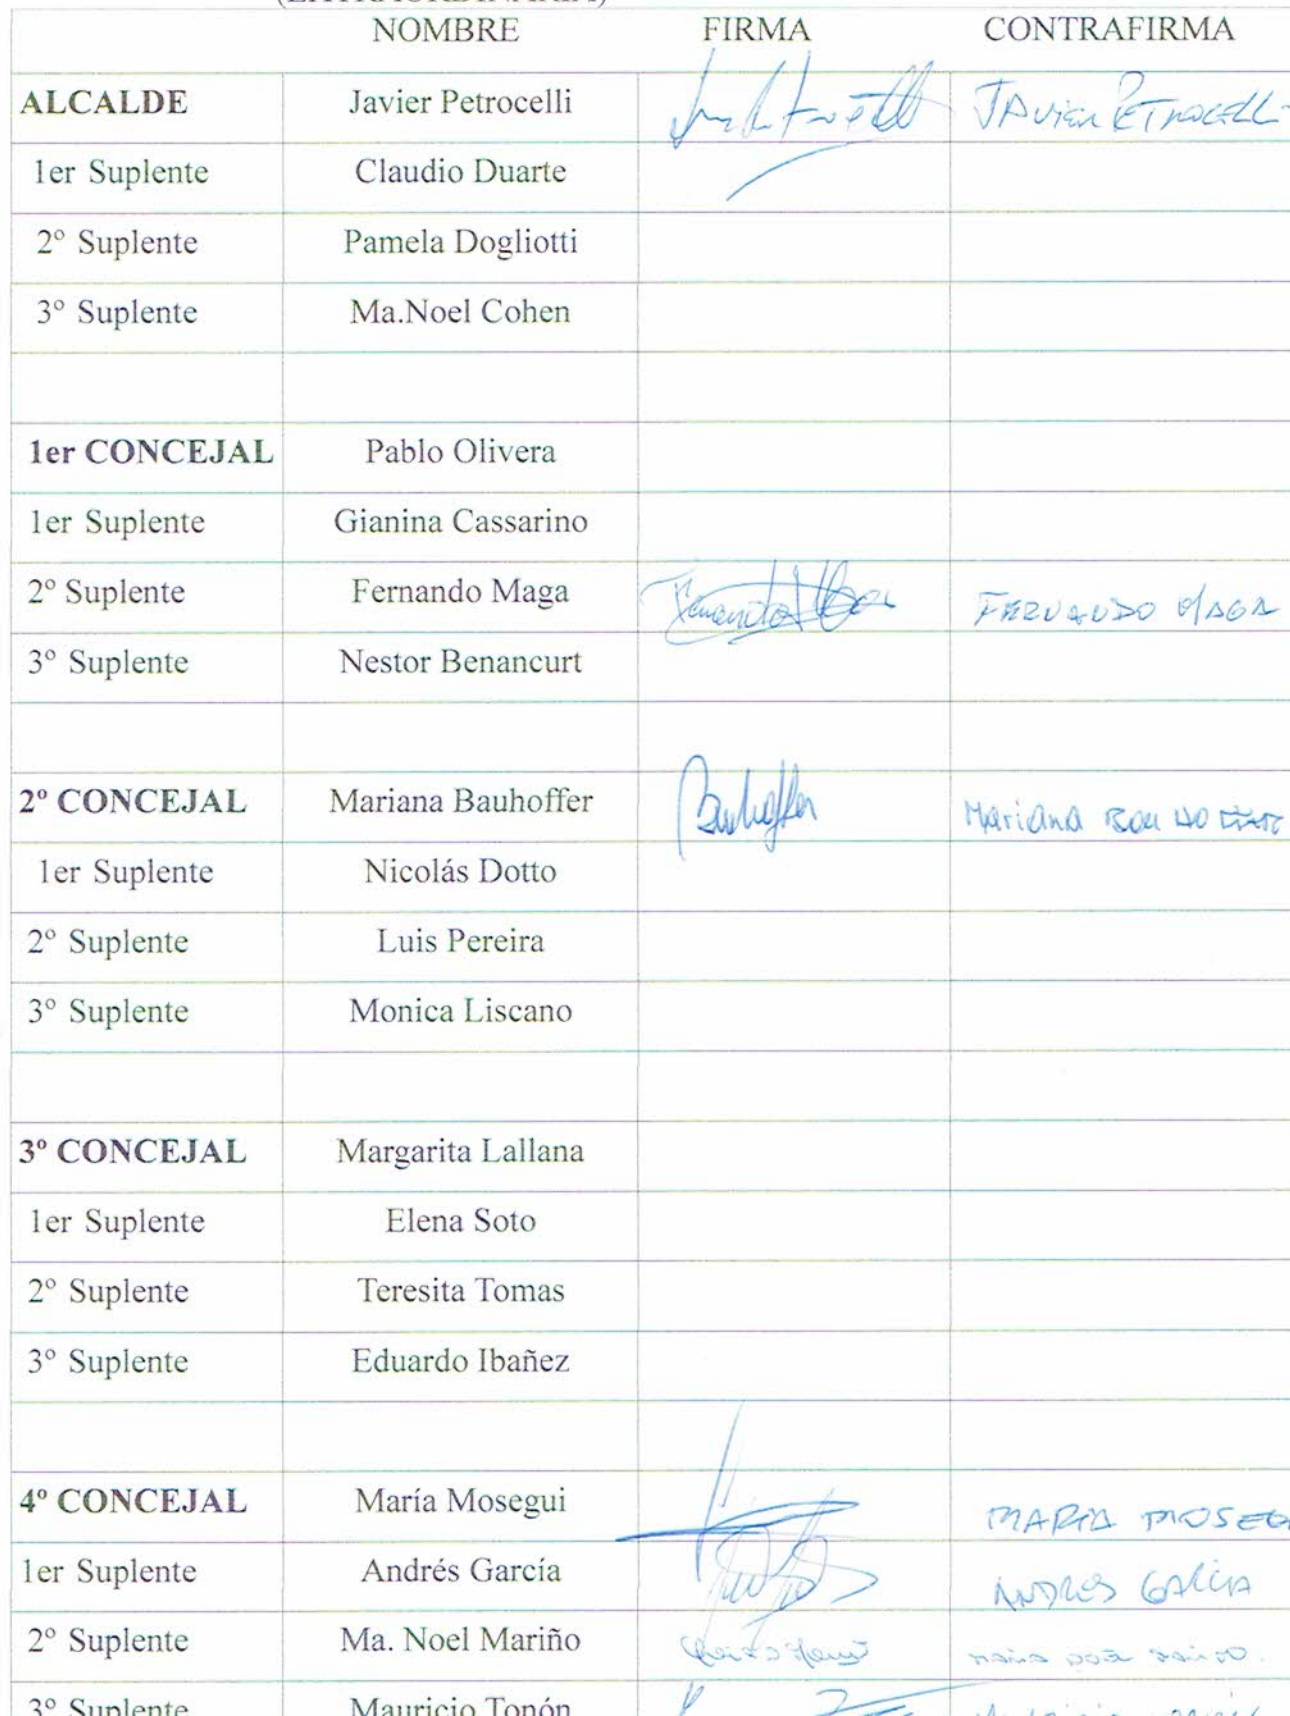 (EXTRAORDINARIA)
NOMBRE FIRMA CONTRAFIRMA
ALCALDE Javier Petrocelli JAvier PETROCELLi
1er Suplente Claudio Duarte
2º Suplente Pamela Dogliotti
3º Suplente Ma.Noel Cohen
1er CONCEJAL Pablo Olivera
1er Suplente Gianina Cassarino
2º Suplente Fernando Maga Fernando FERNANDO MAGA
3º Suplente Nestor Benancurt
2º CONCEJAL Mariana Bauhoffer Bauhoffer Mariana
1er Suplente Nicolás Dotto
2º Suplente Luis Pereira
3º Suplente Monica Liscano
3º CONCEJAL Margarita Lallana
1er Suplente Elena Soto
2º Suplente Teresita Tomas
3º Suplente Eduardo Ibañez
4º CONCEJAL María Mosegui MARIA MOSEG
1er Suplente Andrés García ANDRES GARCIA
2º Suplente Ma. Noel Mariño
3º Suplente Mauricio Tonón